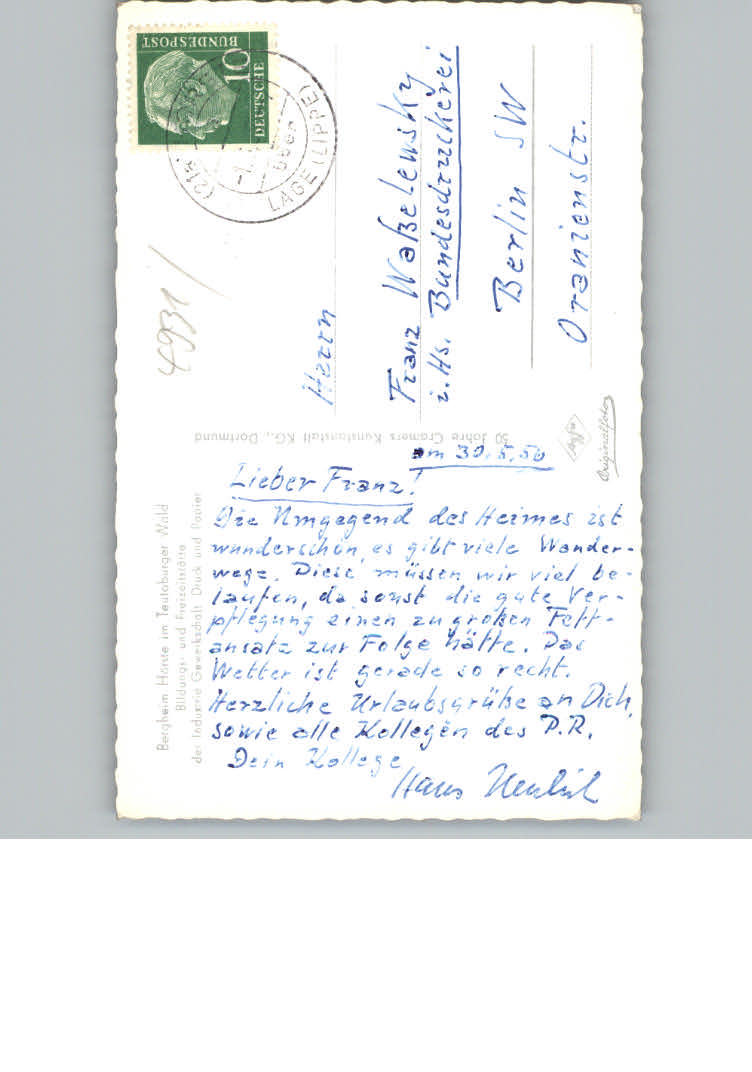 DEUTSCHE
BUNDESPOST
10
LAGE (LIPPE)
4931
Herrn
Franz Waßelewsky
i. Hs. Bundesdruckerei
Berlin SW
Oranienstr.
50 Jahre Cramers Kunstanstalt KG., Dortmund
Agfa
Originalfoto
Bergheim Hörste im Teutoburger Wald
Bildungs- und Freizeitstätte
der Industrie Gewerkschaft Druck und Papier
am 30.5.
Lieber Franz!
Die Umgegend des Heimes ist
wunderschön, es gibt viele Wander-
wege. Diese müssen wir viel be-
laufen, da sonst die gute Ver-
pflegung einen zu großen Fett-
ansatz zur Folge hätte. Das
Wetter ist gerade so recht.
Herzliche Urlaubsgrüße an Dich,
sowie alle Kollegen des P.R.
Dein Kollege
Hans